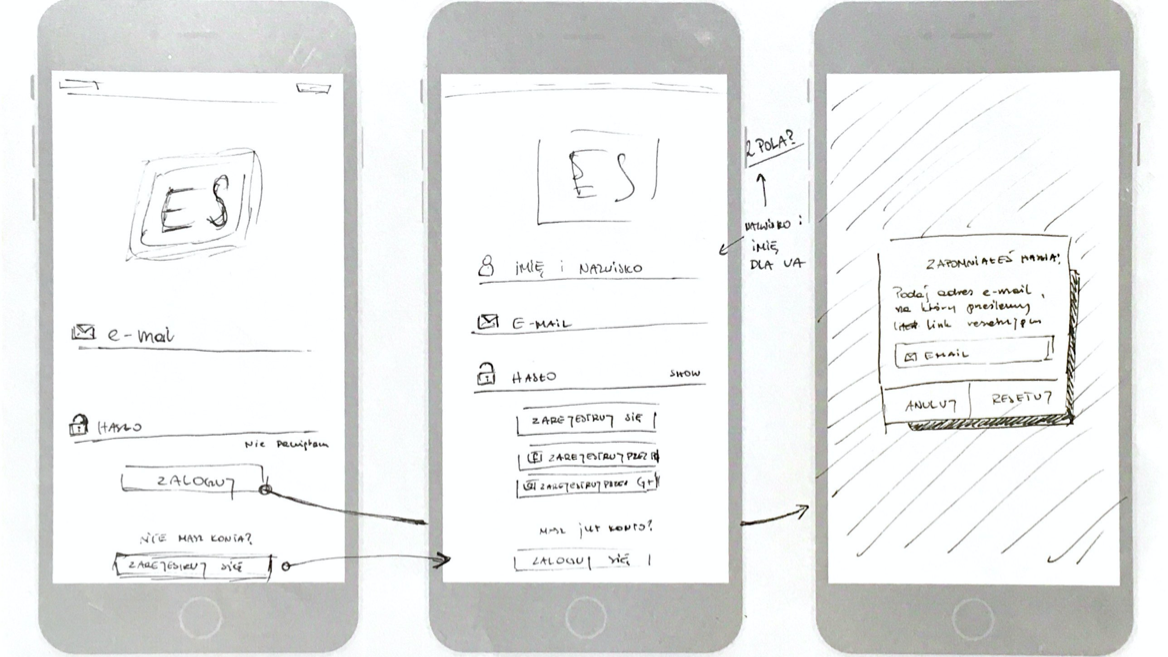 ES
e-mail
HASŁO
Nie pamiętam
ZALOGUJ
NIE MASZ KONTA?
ZAREJESTRUJ SIĘ
ES
IMIĘ i NAZWISKO
E-MAIL
HASŁO SHOW
ZAREJESTRUJ SIĘ
ZAREJESTRUJ PRZEZ
ZAREJESTRUJ PRZEZ G+
MASZ już KONTO?
ZALOGUJ SIĘ
2 POLA?
NAZWISKO i
IMIĘ
DLA UA
ZAPOMNIAŁEŚ HASŁA?
Podaj adres e-mail,
na który prześlemy
link resetujący
EMAIL
ANULUJ RESETUJ